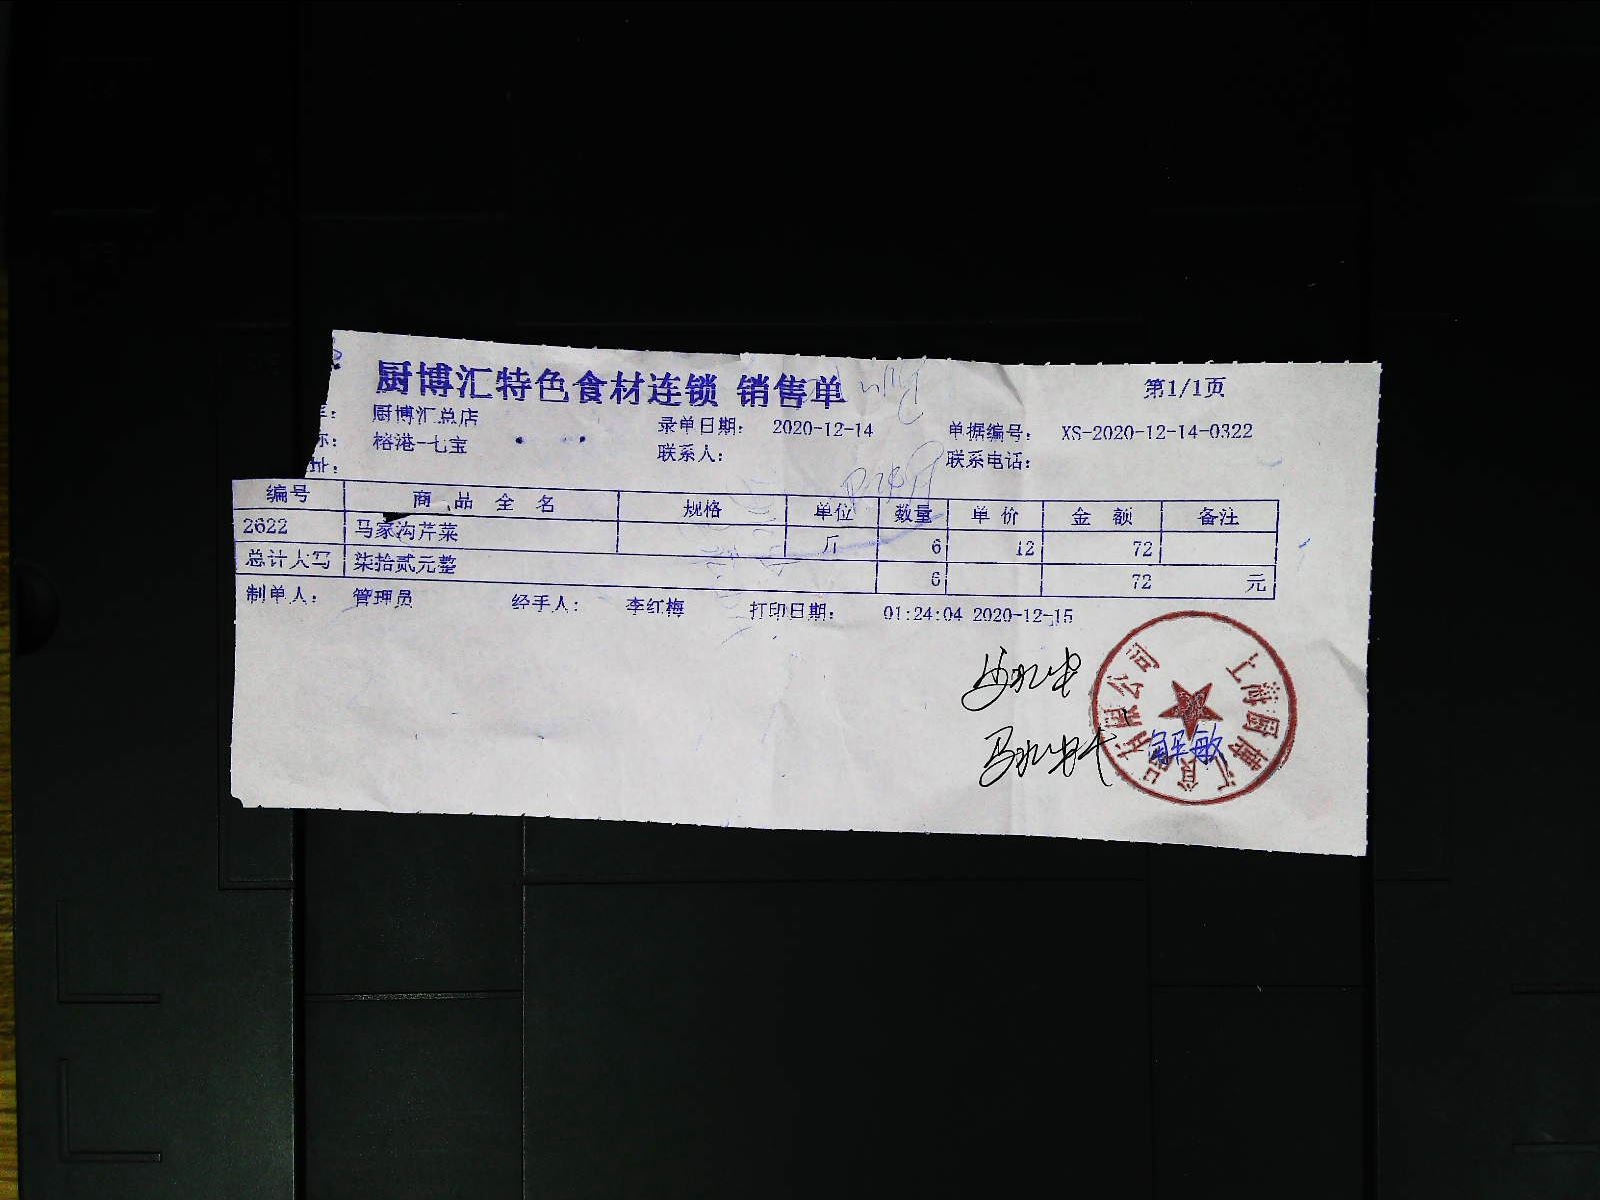 厨博汇特色食材连锁 销售单 第1/1页
厨博汇总店 录单日期: 2020-12-14 单据编号: XS-2020-12-14-0322
榕港-七宝 联系人: 联系电话:
址:
编号 商品全名 规格 单位 数量 单价 金额 备注
2622 马家沟芹菜 斤 6 12 72
总计大写 柒拾贰元整 6 72 元
制单人: 管理员 经手人: 李红梅 打印日期: 01:24:04 2020-12-15
上海厨博汇食品有限公司
解敏